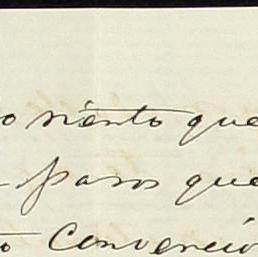 o siento que
pasos que
to convencio